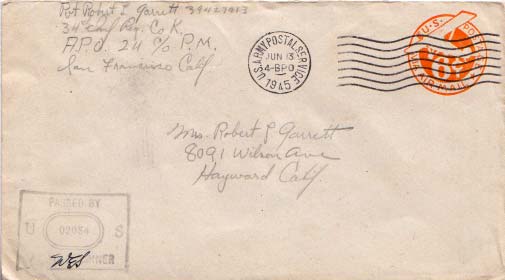 Pvt Robert I Garrett 39427913
34th Inf Reg. Co K.
A.P.O. 24 c/o P.M.
San Francisco Calif.
U.S. ARMY POSTAL SERVICE
JUN 13
4-BPO
1945
U.S. POSTAGE
6¢
VIA AIR MAIL
Mrs. Robert I Garrett
8091 Wilson Ave
Hayward Calif.
PASSED BY
U 02084 S